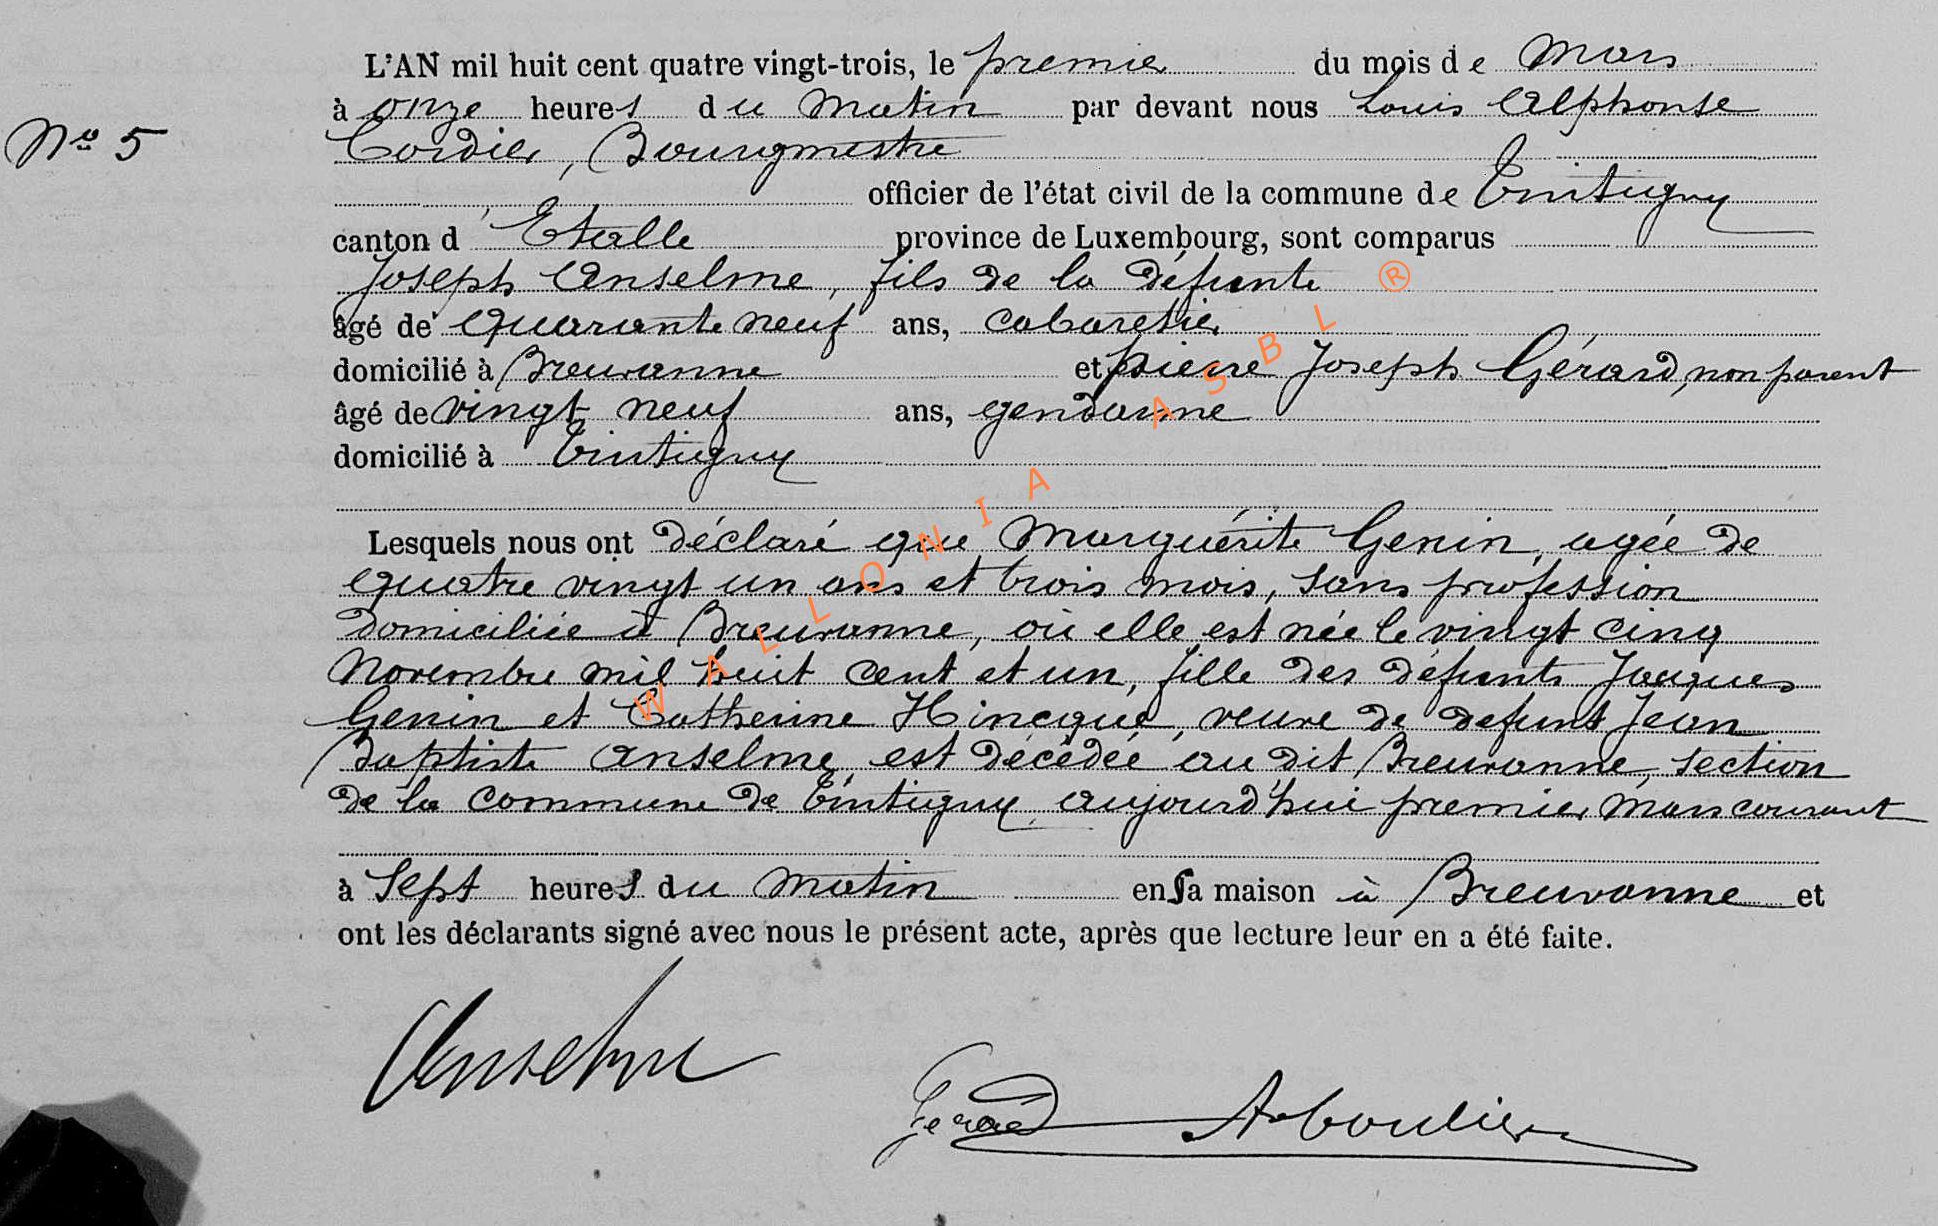 L'AN mil huit cent quatre vingt-trois, le premier du mois de Mars
à onze heures du matin par devant nous Louis Alphonse
N° 5 Cordier, Bourgmestre
officier de l'état civil de la commune de Tintigny
canton d Etalle province de Luxembourg, sont comparus
Joseph Anselme, fils de la défunte
âgé de quarante neuf ans, cabaretier
domicilié à Breuvanne et Pierre Joseph Gérard, non parent
âgé de vingt neuf ans, gendarme
domicilié à Tintigny
Lesquels nous ont déclaré que Marguérite Genin, agée de
quatre vingt un ans et trois mois, sans profession
domiciliée à Breuvanne, où elle est née le vingt cinq
Novembre mil huit cent et un, fille des défunts Jacques
Genin et Catherine Hincque, veuve de defunt Jean
Baptiste Anselme, est décédée au dit Breuvanne, section
de la commune de Tintigny aujourd'hui premier Mars courant
à Sept heures du matin en sa maison à Breuvanne et
ont les déclarants signé avec nous le présent acte, après que lecture leur en a été faite.
Anselme
Gerard
WALLONIA ASBL ®